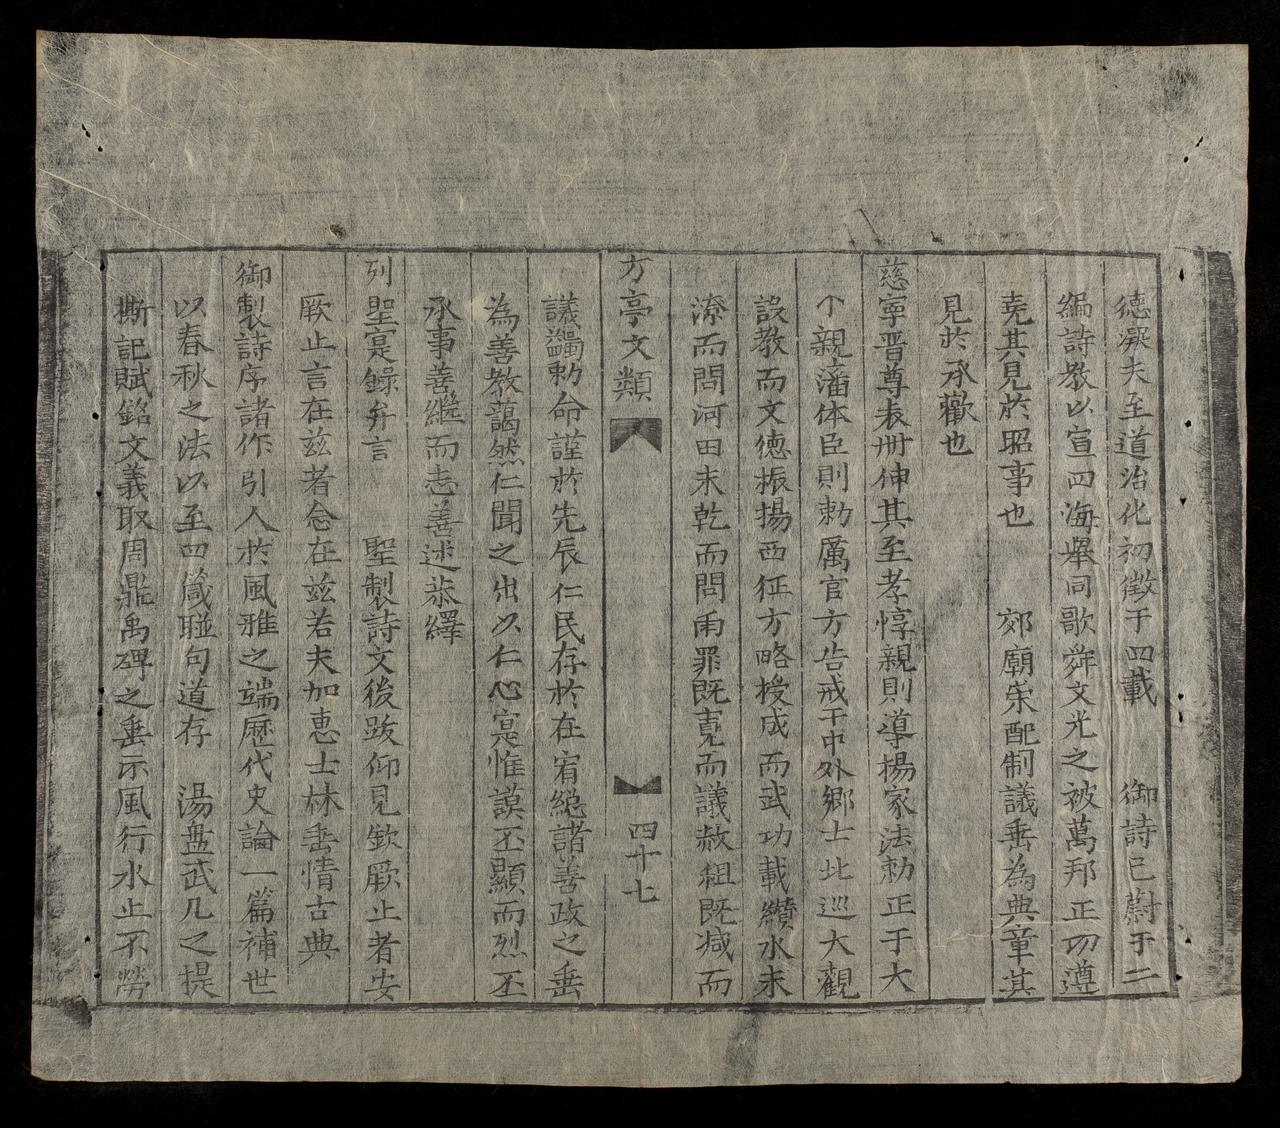 德凝夫至道治化初徵于四載　御詩已蔚于二
編詩教以宣四海舉同歌舜文光之被萬邦正切遵
堯其見於昭事也　郊廟祭配制議垂為典章其
見於承歡也
慈寧晋尊表册伸其至孝惇親則導揚家法勅正于大
个親藩体臣則勅厲官方告戒于中外鄉士北巡大觀
設教而文德振揚西征方略授成而武功載纘水未
潦而問河田未乾而問雨罪既寬而議赦租既减而
方亭文類　四十七
議蠲勅命謹於先辰仁民存於在宥總諸善政之垂
為善教藹然仁聞之出以仁心寔惟謨丕顯而烈丕
承事善繼而志善述恭繹
列聖寔錄弁言　聖製詩文後跋仰見欽厥止者安
厥止言在兹者念在兹若夫加惠士林垂情古典
御製詩序諸作引人於風雅之端歷代史論一篇補世
以春秋之法以至四箴聯句道存　湯盤武几之提
撕記賦銘文義取周鼎禹碑之垂示風行水止不勞